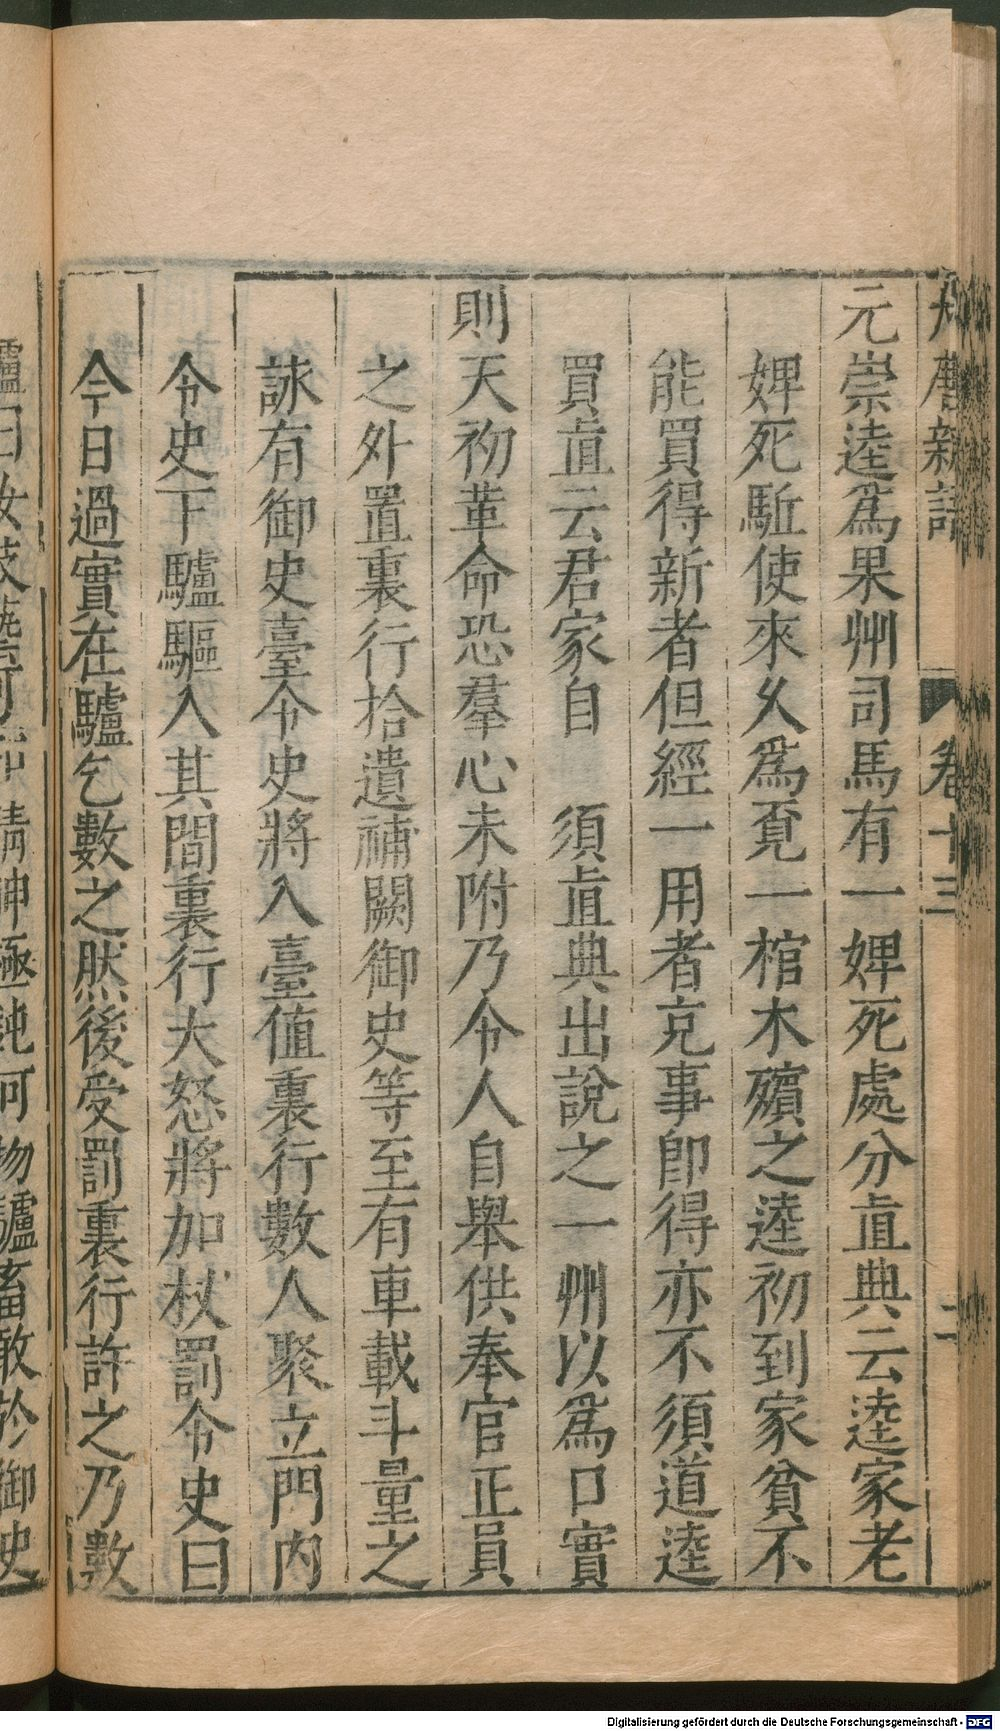 大唐新語 卷十三 二
元崇逵爲果州司馬有一婢死處分直典云逵家老
婢死駈使來久爲覓一棺木殯之逵初到家貧不
能買得新者但經一用者充事即得亦不須道逵
買直云君家自 須直典出說之一州以爲口實
則天初革命恐羣心未附乃令人自舉供奉官正員
之外置裏行拾遺補闕御史等至有車載斗量之
詠有御史臺令史將入臺值裏行數人聚立門內
令史下驢驅入其間裏行大怒將加杖罰令史曰
今日過實在驢乞數之然後受罰裏行許之乃數
驢曰汝技藝可知精神極鈍何物驢畜敢於御史
Digitalisierung gefördert durch die Deutsche Forschungsgemeinschaft - DFG